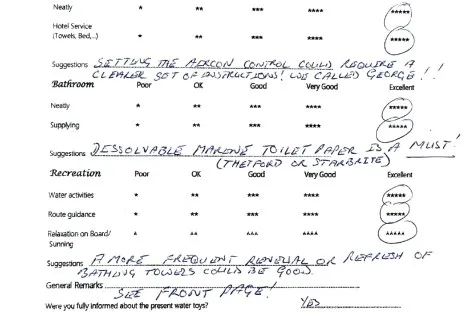 Neatly * ** *** **** *****
Hotel Service
(Towels, Bed,..) * ** *** **** *****
Suggestions SETTING THE AERCON CONTROL COULD REQUIRE A
CLEARER SET OF INSTRUCTIONS! WE CALLED GEORGE!!
Bathroom Poor OK Good Very Good Excellent
Neatly * ** *** **** *****
Supplying * ** *** **** *****
Suggestions DESSOLVABLE MARENE TOILET PAPER IS A MUST!
(THETFORD OR STARBRITE)
Recreation Poor OK Good Very Good Excellent
Water activities * ** *** **** *****
Route guidance * ** *** **** *****
Relaxation on Board/ * ** *** **** *****
Sunning
Suggestions A MORE FREQUENT RENEWAL OR REFRESH OF
BATHING TOWELS COULD BE GOOD.
General Remarks SEE FRONT PAGE!
Were you fully informed about the present water toys? YES